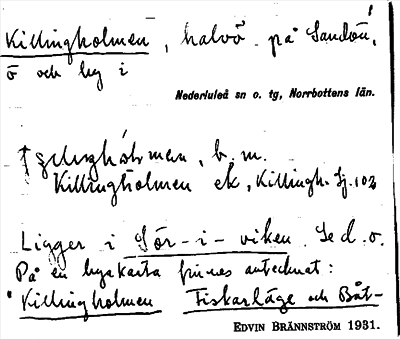 Killingholmen, halvö på Sandön,
ö och by i
Nederluleå sn o. tg, Norrbottens län.
b. m.
Killingholmen ek, Killingh. Sj. 102
Ligger i Sör-i-viken. Se d. o.
På en byakarta finnes antecknat:
"Killingholmen Fiskarläge och Båt-
EDVIN BRÄNNSTRÖM 1931.